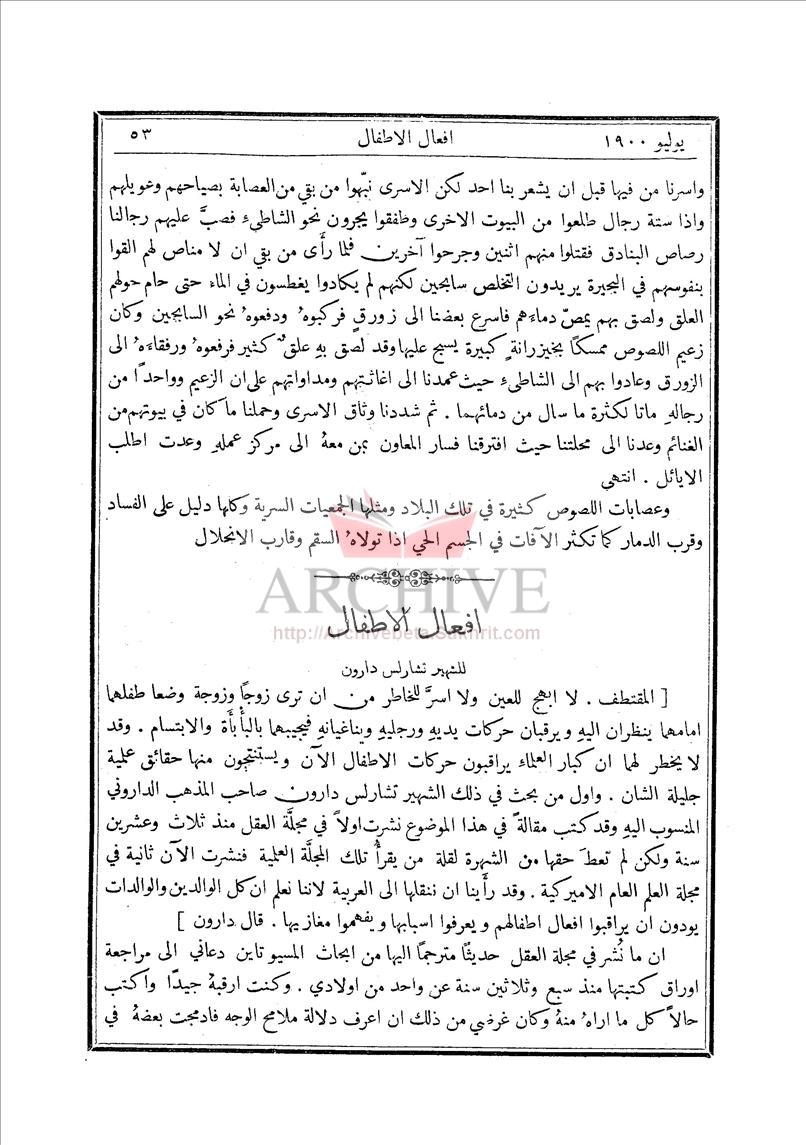 يوليو ١٩٠٠ افعال الاطفال ٥٣
واسرنا من فيها قبل ان يشعر بنا احد لكن الاسرى نبّهوا من بقي من العصابة بصياحهم وعويلهم
واذا ستة رجال طلعوا من البيوت الاخرى وطفقوا يجرون نحو الشاطىء فصبَّ عليهم رجالنا
رصاص البنادق فقتلوا منهم اثنين وجرحوا آخرين فلما رأَى من بقي ان لا مناص لهم القوا
بنفوسهم في البحيرة يريدون التخلص سابحين لكنهم لم يكادوا يغطسون في الماء حتى حام حولهم
العلق ولصق بهم يمصّ دماءَهم فاسرع بعضنا الى زورقٍ فركبوهُ ودفعوهُ نحو السابحين وكان
زعيم اللصوص ممسكًا بخيزرانةٍ كبيرة يسبح عليها وقد لصق بهِ علقٌ كثير فرفعوهُ ورفقاءَهُ الى
الزورق وعادوا بهم الى الشاطىء حيث عمدنا الى اغاثتهم ومداواتهم على ان الزعيم وواحدًا من
رجالهِ ماتا لكثرة ما سال من دمائهما . ثم شددنا وثاق الاسرى وحملنا ما كان في بيوتهم من
الغنائم وعدنا الى محلتنا حيث افترقنا فسار المعاون بمن معهُ الى مركز عملهِ وعدت اطلب
الايائل . انتهي
وعصابات اللصوص كثيرة في تلك البلاد ومثلها الجمعيات السرية وكلها دليل على الفساد
وقرب الدمار كما تكثر الآفات في الجسم الحي اذا تولاهُ السقم وقارب الانحلال
ARCHIVE
افعال الاطفال
http://Archivebeta.Sakhrit.com
للشهير تشارلس دارون
[ المقتطف . لا ابهج للعين ولا اسرَّ للخاطر من ان ترى زوجًا وزوجة وضعا طفلهما
امامهما ينظران اليهِ ويرقبان حركات يديهِ ورجليهِ ويناغيانهِ فيجيبهما بالبأْبأَة والابتسام . وقد
لا يخطر لهما ان كبار العلماء يراقبون حركات الاطفال الآن ويستنتجون منها حقائق علمية
جليلة الشان . واول من بحث في ذلك الشهير تشارلس دارون صاحب المذهب الداروني
المنسوب اليهِ وقد كتب مقالةً في هذا الموضوع نشرت اولاً في مجلَّة العقل منذ ثلاث وعشرين
سنة ولكن لم تعطَ حقها من الشهرة لقلة من يقرأُ تلك المجلَّة العلمية فنشرت الآن ثانية في
مجلة العلم العام الاميركية . وقد رأَينا ان ننقلها الى العربية لاننا نعلم ان كل الوالدين والوالدات
يودون ان يراقبوا افعال اطفالهم ويعرفوا اسبابها ويفهموا مغازيها . قال دارون ]
ان ما نُشر في مجلة العقل حديثًا مترجمًا اليها من ابحاث المسيو تاين دعاني الى مراجعة
اوراق كتبتها منذ سبع وثلاثين سنة عن واحد من اولادي . وكنت ارقبهُ جيدًا واكتب
حالاً كل ما اراهُ منهُ وكان غرضي من ذلك ان اعرف دلالة ملامح الوجه فادمجت بعضهُ في